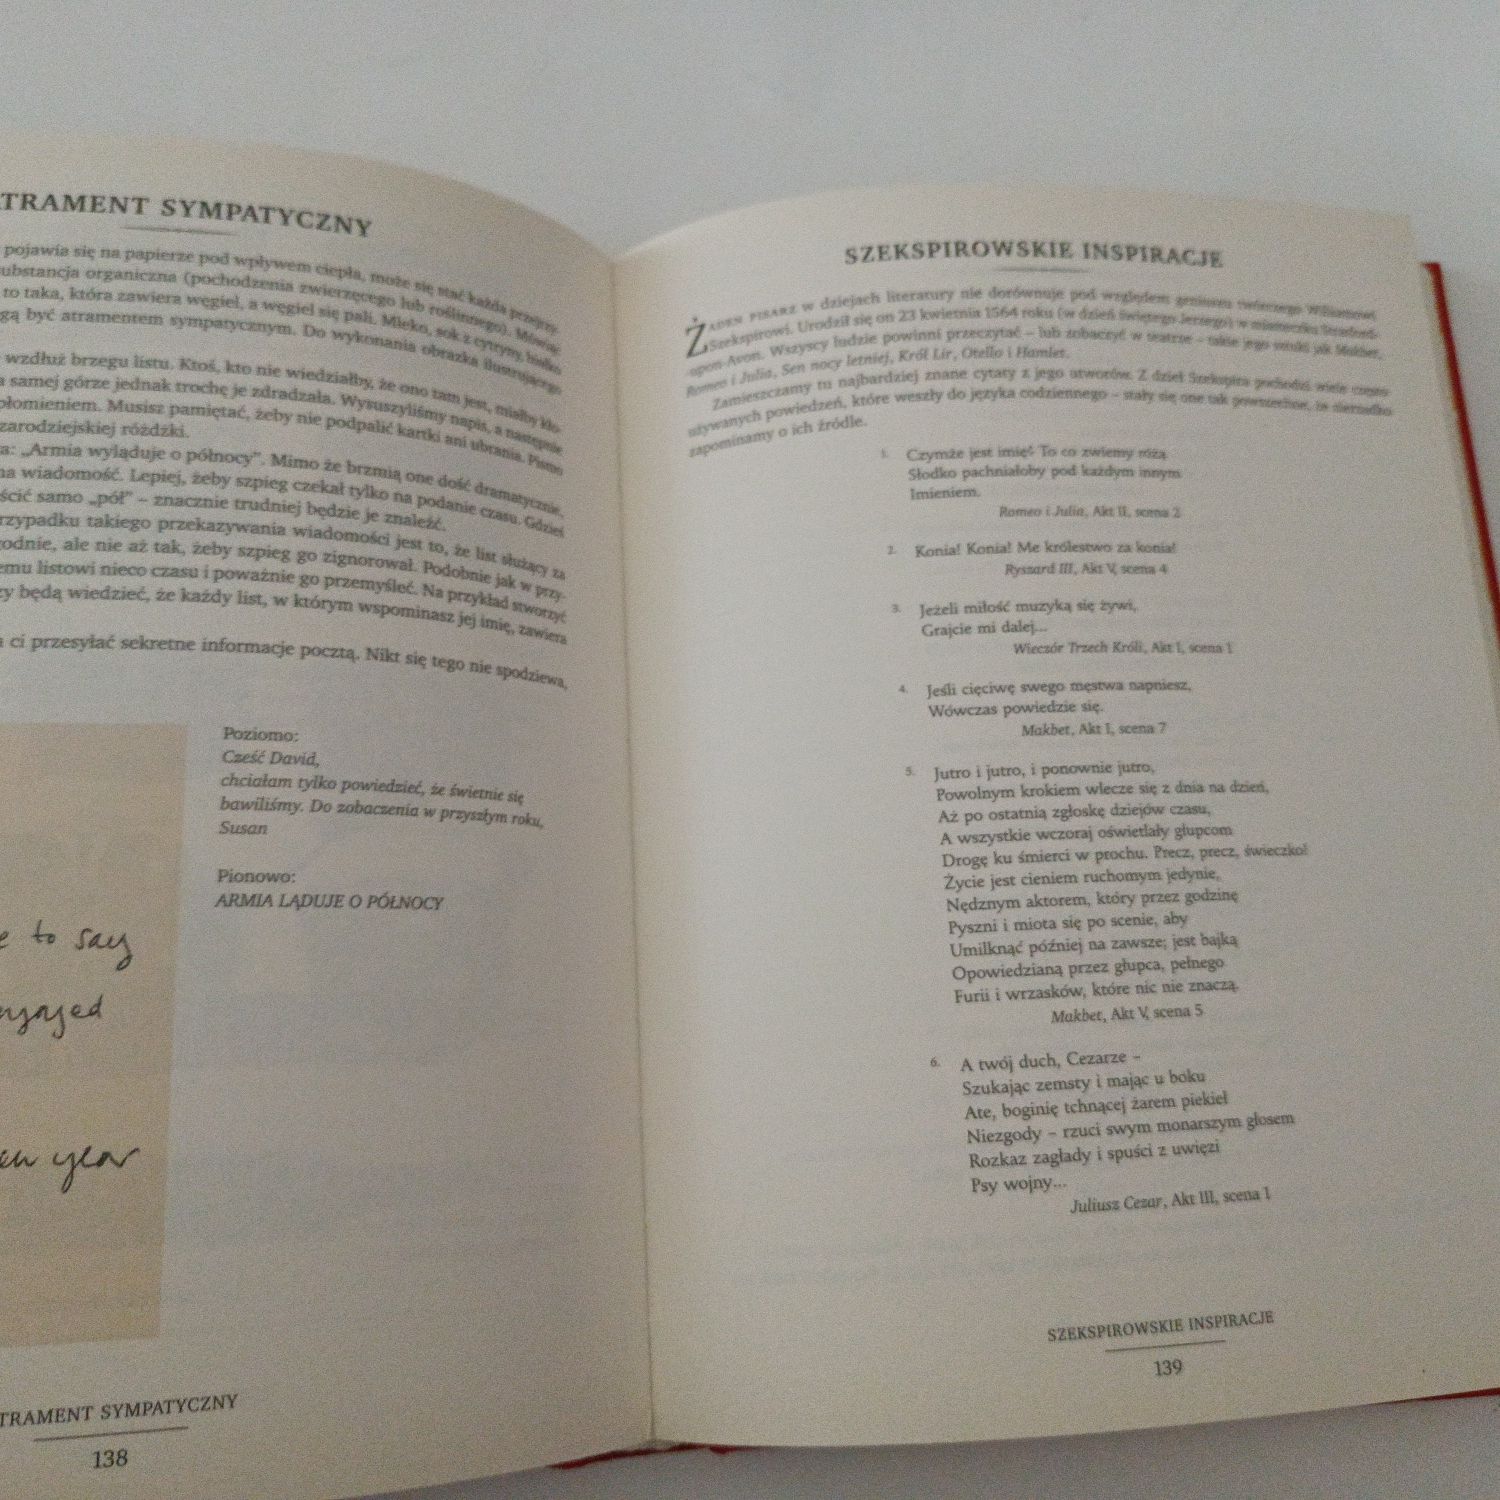 TRAMENT SYMPATYCZNY
pojawia się na papierze pod wpływem ciepła, może się stać każda przejrzy-
ubstancja organiczna (pochodzenia zwierzęcego lub roślinnego). Mówiąc
to taka, która zawiera węgiel, a węgiel się pali. Mleko, sok z cytryny, białko
gą być atramentem sympatycznym. Do wykonania obrazka ilustrującego
wzdłuż brzegu listu. Ktoś, kto nie wiedziałby, że ono tam jest, miałby kło-
a samej górze jednak trochę je zdradzała. Wysuszyliśmy napis, a następnie
płomieniem. Musisz pamiętać, żeby nie podpalić kartki ani ubrania. Pismo
zarodziejskiej różdżki.
a: „Armia wyląduje o północy”. Mimo że brzmią one dość dramatycznie,
na wiadomość. Lepiej, żeby szpieg czekał tylko na podanie czasu. Gdzieś
ścić samo „pół” – znacznie trudniej będzie je znaleźć.
rzypadku takiego przekazywania wiadomości jest to, że list służący za
odnie, ale nie aż tak, żeby szpieg go zignorował. Podobnie jak w przy-
emu listowi nieco czasu i poważnie go przemyśleć. Na przykład stworzyć
zy będą wiedzieć, że każdy list, w którym wspominasz jej imię, zawiera
a ci przesyłać sekretne informacje pocztą. Nikt się tego nie spodziewa,
Poziomo:
Cześć David,
chciałam tylko powiedzieć, że świetnie się
bawiliśmy. Do zobaczenia w przyszłym roku,
Susan
Pionowo:
ARMIA LĄDUJE O PÓŁNOCY
e to say
njoyed
year
TRAMENT SYMPATYCZNY
138
SZEKSPIROWSKIE INSPIRACJE
ŻADEN PISARZ w dziejach literatury nie dorównuje pod względem geniuszu twórczego Williamowi
Szekspirowi. Urodził się on 23 kwietnia 1564 roku (w dzień świętego Jerzego) w miasteczku Stratford-
-upon-Avon. Wszyscy ludzie powinni przeczytać – lub zobaczyć w teatrze – takie jego sztuki jak Makbet,
Romeo i Julia, Sen nocy letniej, Król Lir, Otello i Hamlet.
Zamieszczamy tu najbardziej znane cytaty z jego utworów. Z dzieł Szekspira pochodzi wiele często
używanych powiedzeń, które weszły do języka codziennego – stały się one tak powszechne, że nierzadko
zapominamy o ich źródle.
1. Czymże jest imię? To co zwiemy różą
Słodko pachniałoby pod każdym innym
Imieniem.
Romeo i Julia, Akt II, scena 2
2. Konia! Konia! Me królestwo za konia!
Ryszard III, Akt V, scena 4
3. Jeżeli miłość muzyką się żywi,
Grajcie mi dalej...
Wieczór Trzech Króli, Akt I, scena 1
4. Jeśli cięciwę swego męstwa napniesz,
Wówczas powiedzie się.
Makbet, Akt I, scena 7
5. Jutro i jutro, i ponownie jutro,
Powolnym krokiem wlecze się z dnia na dzień,
Aż po ostatnią zgłoskę dziejów czasu,
A wszystkie wczoraj oświetlały głupcom
Drogę ku śmierci w prochu. Precz, precz, świeczko!
Życie jest cieniem ruchomym jedynie,
Nędznym aktorem, który przez godzinę
Pyszni i miota się po scenie, aby
Umilknąć później na zawsze; jest bajką
Opowiedzianą przez głupca, pełnego
Furii i wrzasków, które nic nie znaczą.
Makbet, Akt V, scena 5
6. A twój duch, Cezarze –
Szukając zemsty i mając u boku
Ate, boginię tchnącej żarem piekieł
Niezgody – rzuci swym monarszym głosem
Rozkaz zagłady i spuści z uwięzi
Psy wojny...
Juliusz Cezar, Akt III, scena 1
SZEKSPIROWSKIE INSPIRACJE
139